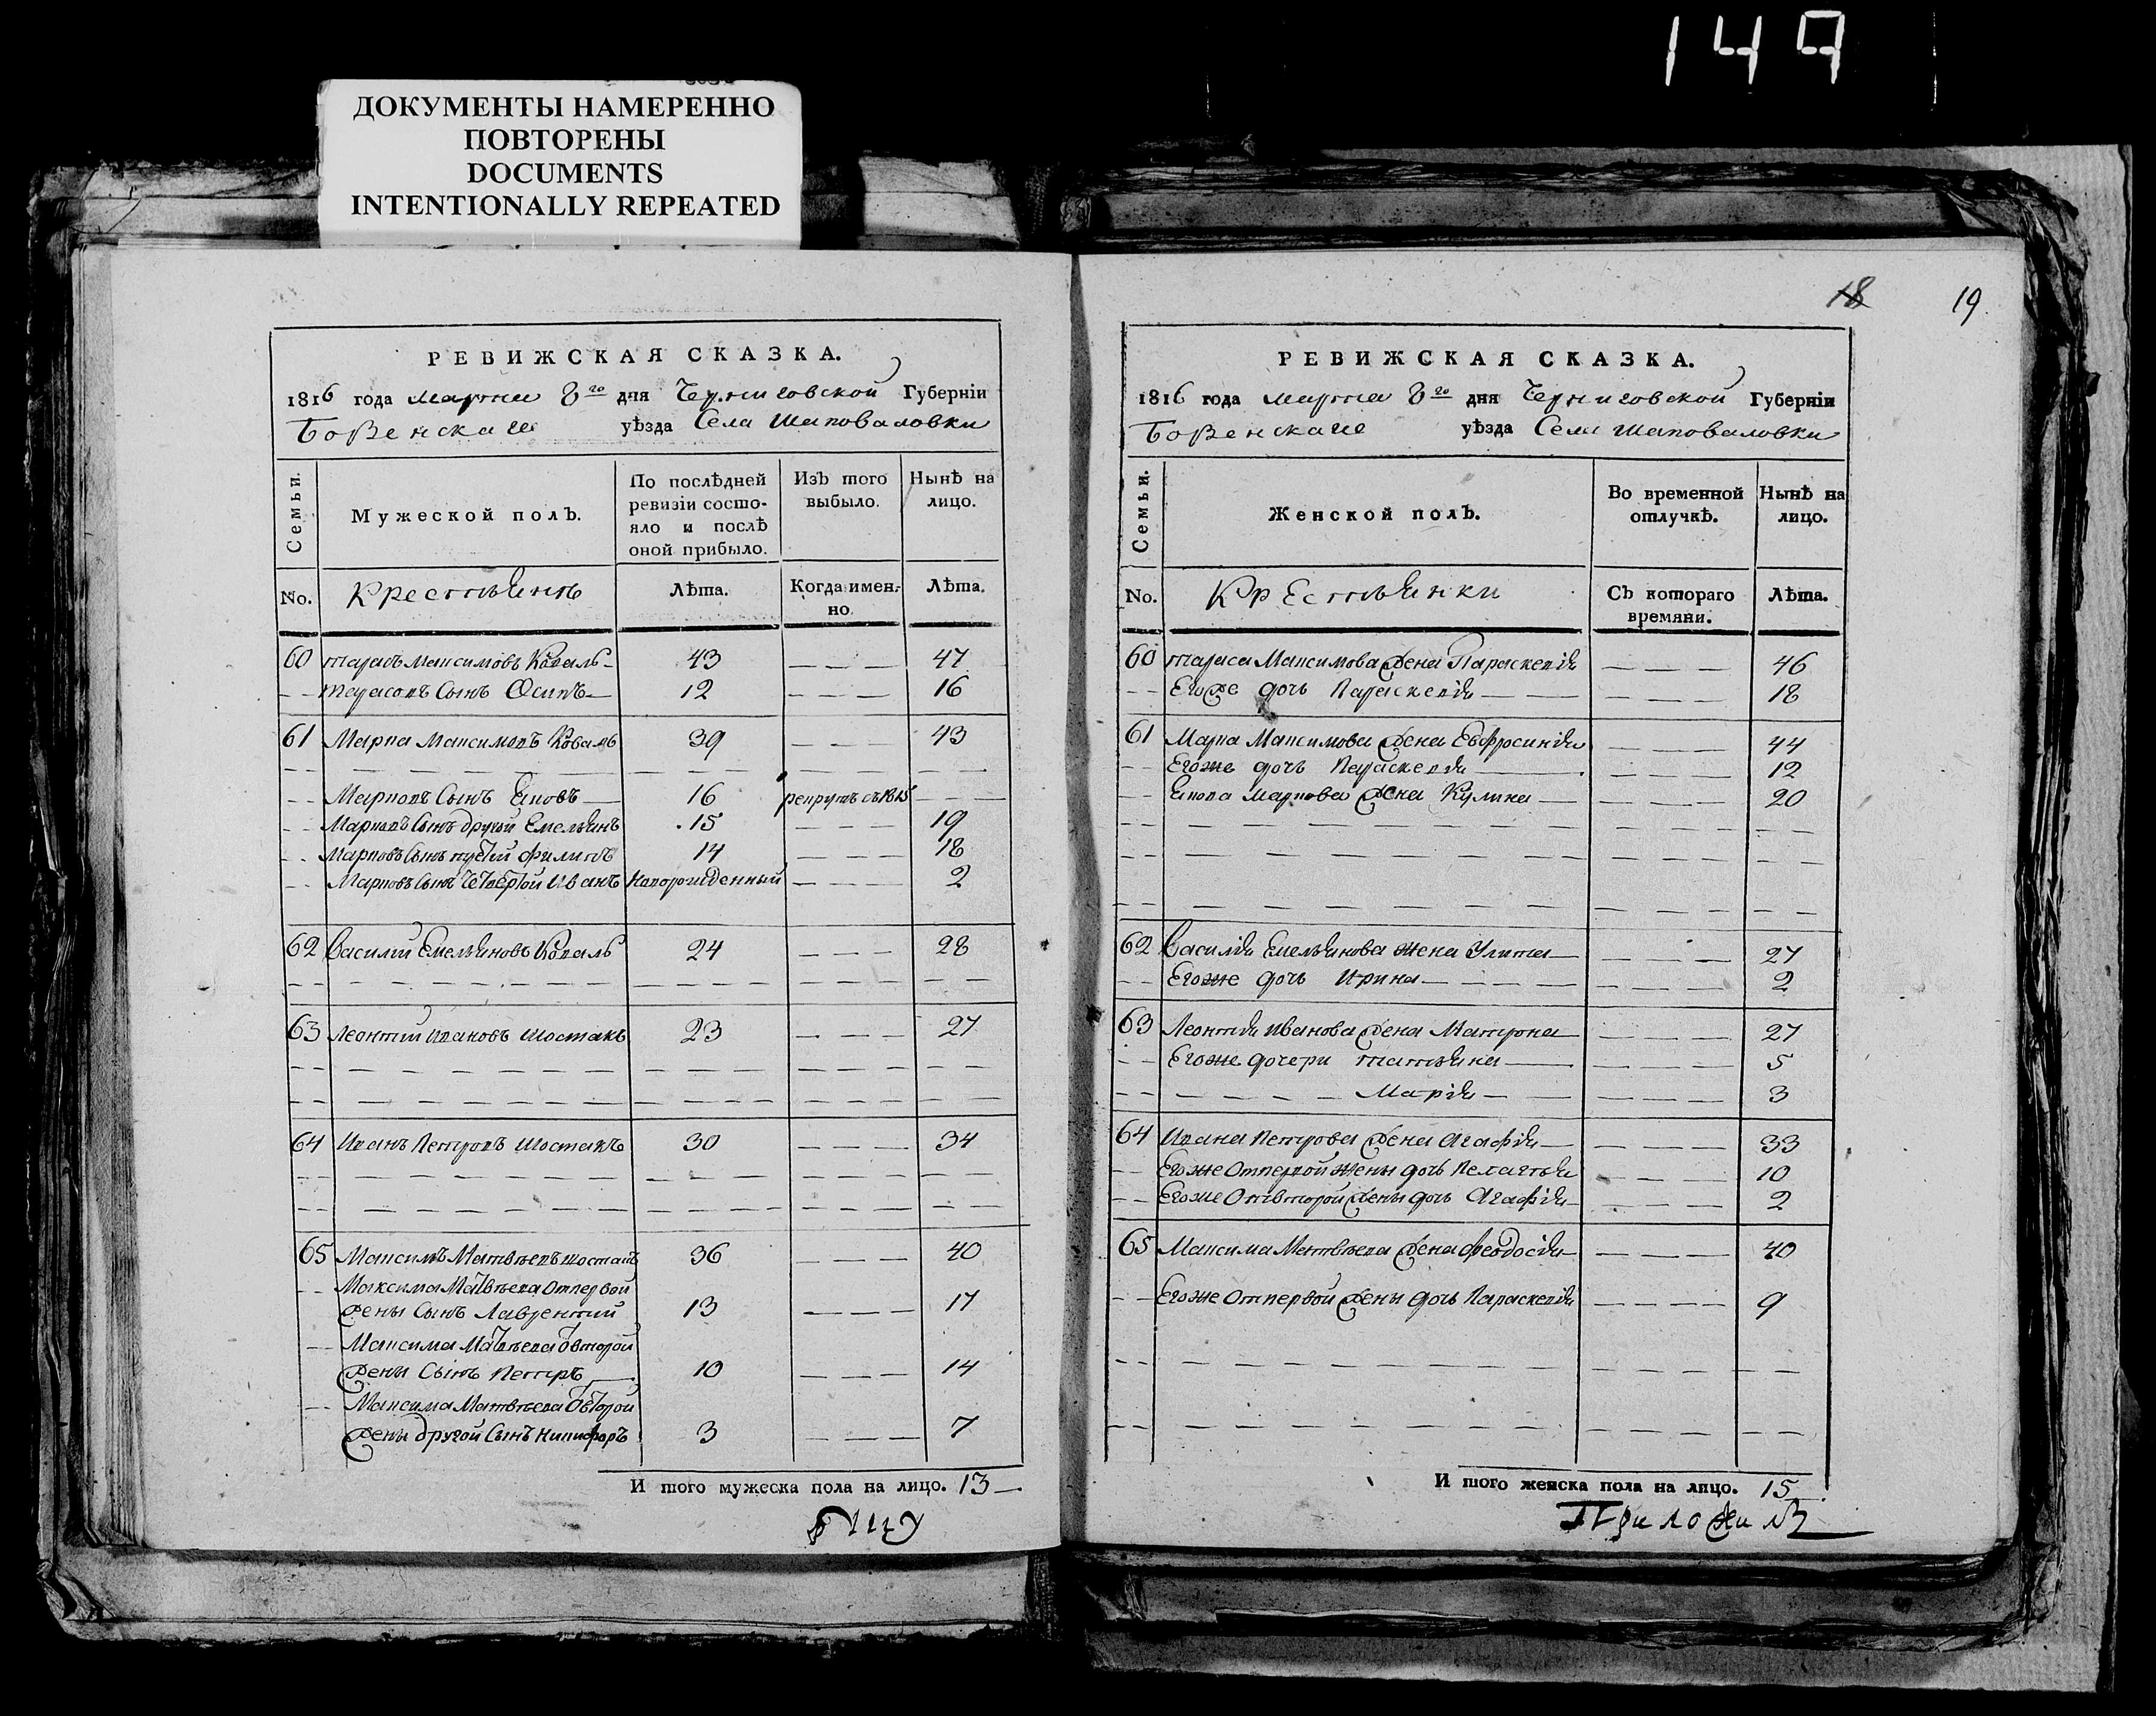 149
ДОКУМЕНТЫ НАМЕРЕННО
ПОВТОРЕНЫ
DOCUMENTS
INTENTIONALLY REPEATED
РЕВИЖСКАЯ СКАЗКА.
1816 года марта 8го дня Черниговской Губерніи
Борзенскаго уѣзда Села Шаповаловки
Семьи.
Мужеской полъ.
По послѣдней ревизіи состояло и послѣ оной прибыло.
Изъ того выбыло.
Нынѣ на лицо.
No. Крестьянъ Лѣта. Когда именно. Лѣта.
60 Тарасъ Максимовъ Коваль 43 — — — 47
— — Тарасовъ Сынъ Осипъ 12 — — — 16
61 Марка Максимовъ Коваль 39 — — — 43
— — Марковъ Сынъ Яковъ 16 рекрутъ съ 1815 — —
— — Марковъ Сынъ другой Емельянъ 15 — — — 19
— — Марковъ Сынъ третій Филипъ 14 — — — 18
— — Марковъ Сынъ четвертой Иванъ Новорожденный — — — 2
62 Василій Емельяновъ Коваль 24 — — — 28
63 Леонтій Ивановъ Шостакъ 23 — — — 27
64 Иванъ Петровъ Шостакъ 30 — — — 34
65 Максимъ Матвѣевъ Шостакъ 36 — — — 40
— — Максима Матвѣева Отпервой
жены Сынъ Лаврентий 13 — — — 17
— — Максима Матвѣева Отвторой
жены Сынъ Петръ 10 — — — 14
— — Максима Матвѣева Отвторой
жены другой Сынъ Никифоръ 3 — — — 7
И того мужеска пола на лицо. 13
18 19
РЕВИЖСКАЯ СКАЗКА.
1816 года марта 8го дня Черниговской Губерніи
Борзенскаго уѣзда Села Шаповаловки
Семьи.
Женской полъ.
Во временной отлучкѣ.
Нынѣ на лицо.
No. Крестьянки Съ котораго времяни. Лѣта.
60 Тараса Максимова жена Параскевія — — — 46
— — Егоже дочь Параскевія — — — 18
61 Марка Максимова жена Евфросинія — — — 44
— — Егоже дочь Параскевія — — — 12
— — Якова Маркова жена Кулина — — — 20
62 Василія Емельянова жена Улита — — — 27
— — Егоже дочь Ирина — — — 2
63 Леонтія Иванова жена Матрона — — — 27
— — Егоже дочери Татьяна — — — 5
— — — — — — Марія — — — 3
64 Ивана Петрова жена Агафія — — — 33
— — Егоже Отпервой жены дочь Пелагья — — — 10
— — Егоже Отвторой жены дочь Агафія — — — 2
65 Максима Матвѣева жена Феодосія — — — 40
— — Егоже Отпервой жены дочь Параскевія — — — 9
И того женска пола на лицо. 15
Приложилъ